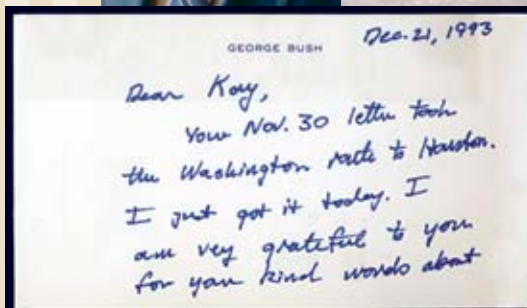 GEORGE BUSH
Dec. 21, 1993
Dear Kay,
Your Nov. 30 letter took
the Washington route to Houston.
I just got it today. I
am very grateful to you
for your kind words about